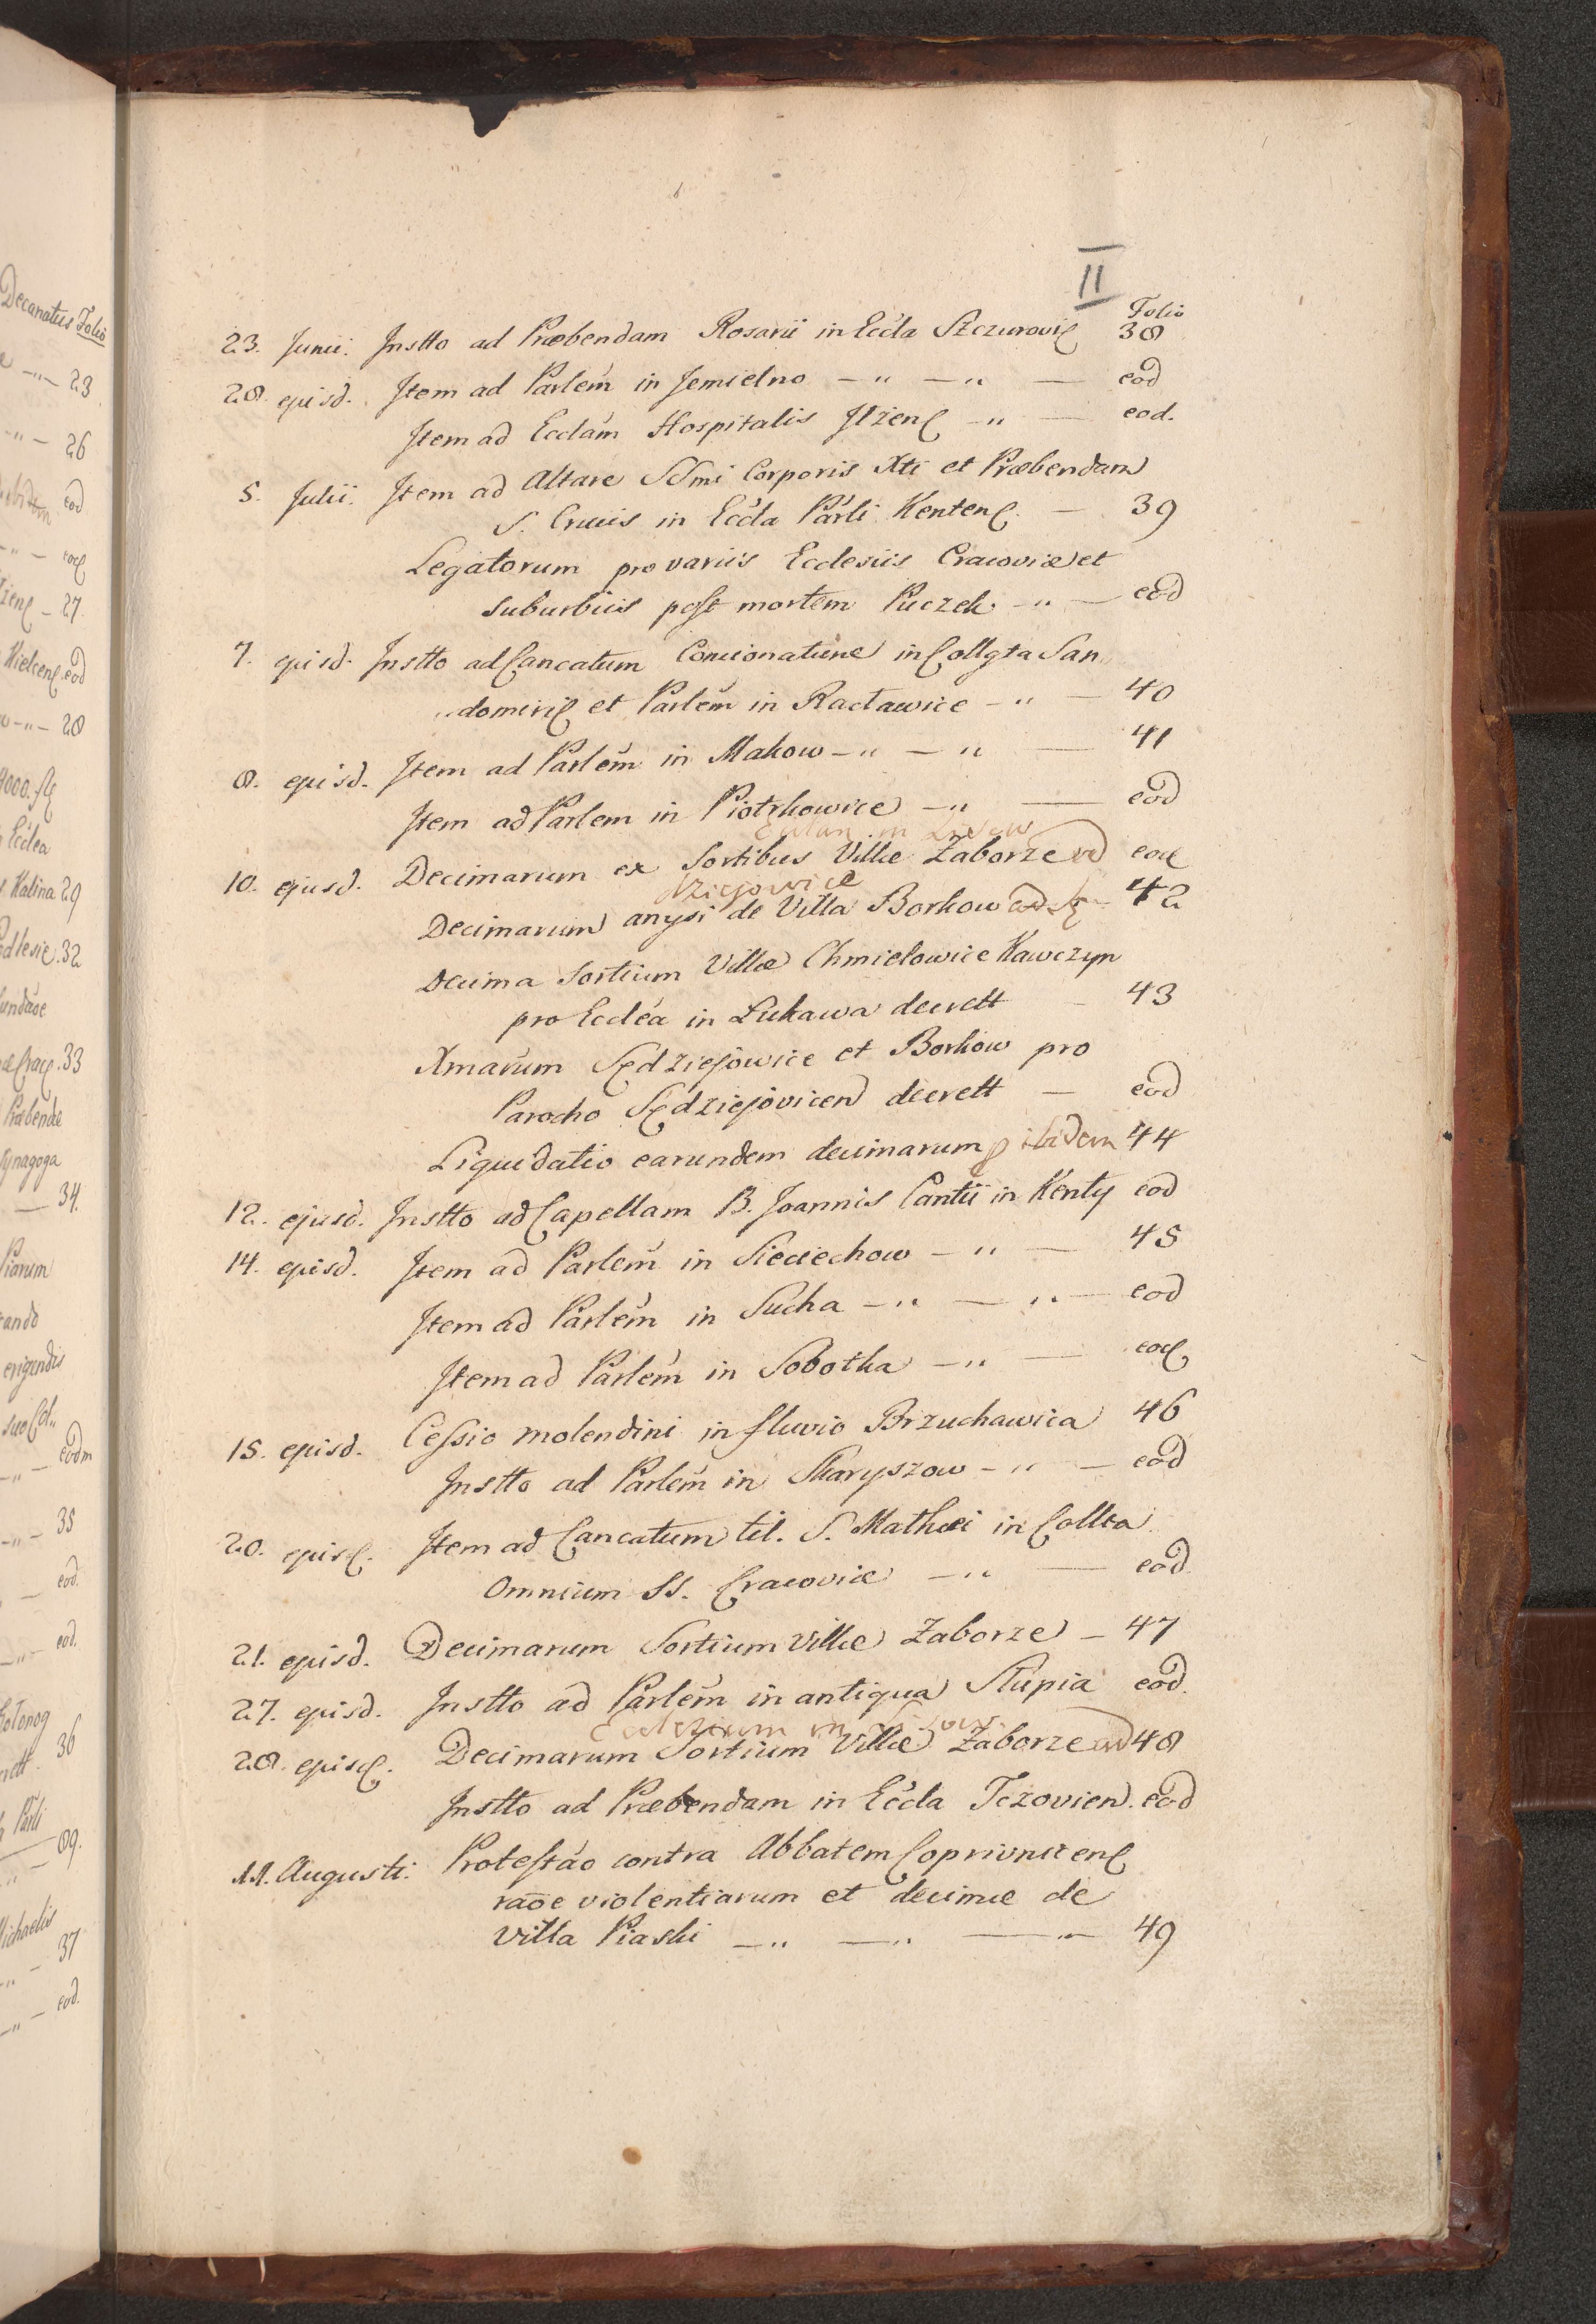 II
Folio
23. Junii. Instto ad Præbendam Rosarii in Eccla Szczurovic 38
28. ejusd. Item ad Parlem in Jemielno — " — " — eod
Item ad Ecclam Hospitalis Ilzenc — " — eod.
5. Julii. Item ad Altare SSmi Corporis Xti et Præbendam
S. Crucis in Eccla Parli Kentenc. — 39
Legatorum pro variis Ecclesiis Cracoviæ et
suburbiis post mortem Puczek. — " — eod
7. ejusd. Instto ad Cancatum Concionatune in Collgta San
"domiric et Parlem in Racławice — " — 40
8. ejusd. Item ad Parlem in Makow — " — " — 41
Item ad Parlem in Piotrkowice — " — eod
10. ejusd. Decimarum ex Sortibus Villæ Zaborze ad eod
Ecclam in
Decimarum anysi de Villa Borkow ad Sę 42
dziejowice
Decima Sortium Villæ Chmielowice Kawczyn
pro Ecclea in Lukawa decrett — 43
Xmarum Sędziejowice et Borkow pro
Parocho Sędziejovicen decrett — eod
Liquidatio earundem decimarum p ibidem 44
12. ejusd. Instto ad Capellam B. Joannis Cantii in Kenty eod
14. ejusd. Item ad Parlem in Sieciechow — " — 45
Item ad Parlem in Sucha — " — " — eod
Item ad Parlem in Sobotka — " — eod
15. ejusd. Cessio molendini in fluvio Brzuchawica 46
Instto ad Parlem in Skaryszow — " — eod
20. ejusd. Item ad Cancatum tit. S. Mathæi in Collta
Omnium SS. Cracoviæ — " — eod
21. ejusd. Decimarum Sortium Villæ Zaborze — 47
27. ejusd. Instto ad Parlem in antiqua Słupia eod.
28. ejusd. Decimarum Sortium Villæ Zaborze ad 48
Ecclesiam in
Instto ad Præbendam in Eccla Tczovien. eod
11. Augusti. Protestao contra Abbatem Coprivnicenc
raõe violentiarum et decimæ de
Villa Piaski — " — " — " — 49